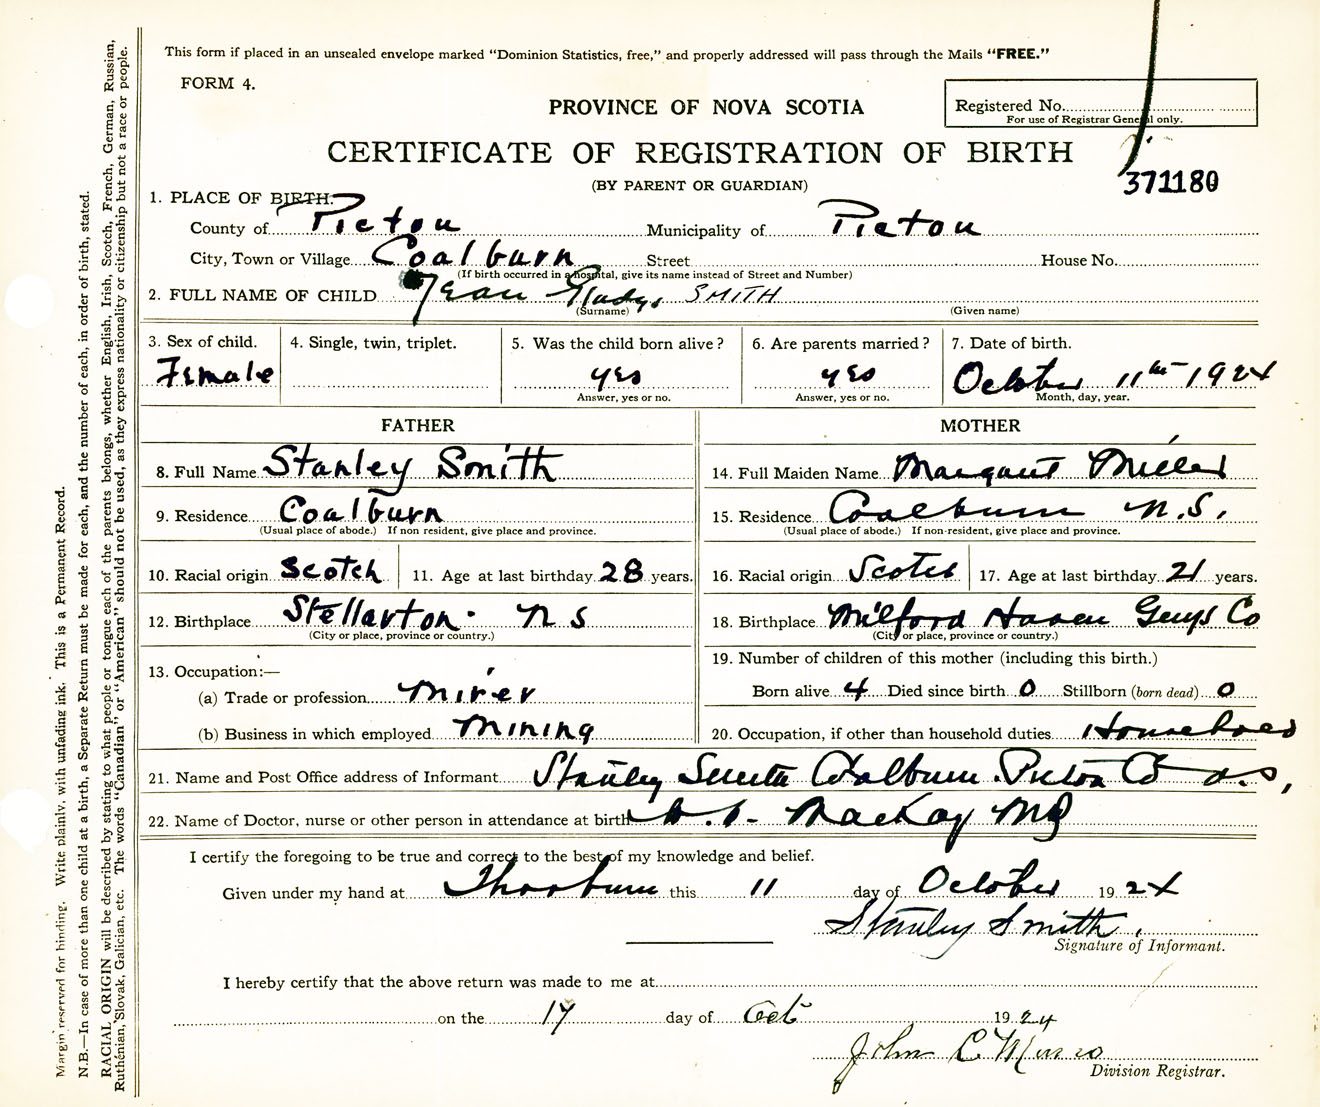 This form if placed in an unsealed envelope marked "Dominion Statistics, free," and properly addressed will pass through the Mails "FREE."
FORM 4.
PROVINCE OF NOVA SCOTIA
Registered No.
For use of Registrar General only.
CERTIFICATE OF REGISTRATION OF BIRTH
(BY PARENT OR GUARDIAN)
371180
1. PLACE OF BIRTH:
County of Pictou Municipality of Pictou
City, Town or Village Coalburn Street House No.
(If birth occurred in a hospital, give its name instead of Street and Number)
2. FULL NAME OF CHILD Jean Gladys SMITH
(Surname) (Given name)
3. Sex of child. 4. Single, twin, triplet. 5. Was the child born alive? 6. Are parents married? 7. Date of birth.
Female yes yes October 11th 1924
Answer, yes or no. Answer, yes or no. Month, day, year.
FATHER MOTHER
8. Full Name Stanley Smith 14. Full Maiden Name Margaret Miller
9. Residence Coalburn 15. Residence Coalburn N.S.
(Usual place of abode.) If non resident, give place and province. (Usual place of abode.) If non-resident, give place and province.
10. Racial origin Scotch 11. Age at last birthday 28 years. 16. Racial origin Scotch 17. Age at last birthday 21 years.
12. Birthplace Stellarton N S 18. Birthplace Milford Haven Guys Co
(City or place, province or country.) (City or place, province or country.)
13. Occupation:— 19. Number of children of this mother (including this birth.)
(a) Trade or profession Miner Born alive 4 Died since birth 0 Stillborn (born dead) 0
(b) Business in which employed Mining 20. Occupation, if other than household duties
21. Name and Post Office address of Informant Stanley Smith Coalburn Pictou Co N.S.,
22. Name of Doctor, nurse or other person in attendance at birth MacKay MD
I certify the foregoing to be true and correct to the best of my knowledge and belief.
Given under my hand at Thorburn this 11 day of October 1924
Stanley Smith.
Signature of Informant.
I hereby certify that the above return was made to me at
on the 17 day of Oct 1924
John C Munro
Division Registrar.
Margin reserved for binding. Write plainly, with unfading ink. This is a Permanent Record.
N.B.—In case of more than one child at a birth, a Separate Return must be made for each, and the number of each, in order of birth, stated.
RACIAL ORIGIN will be described by stating to what people or tongue each of the parents belongs, whether English, Irish, Scotch, French, German, Russian,
Ruthenian, Slovak, Galician, etc. The words "Canadian" or "American" should not be used, as they express nationality or citizenship but not a race or people.